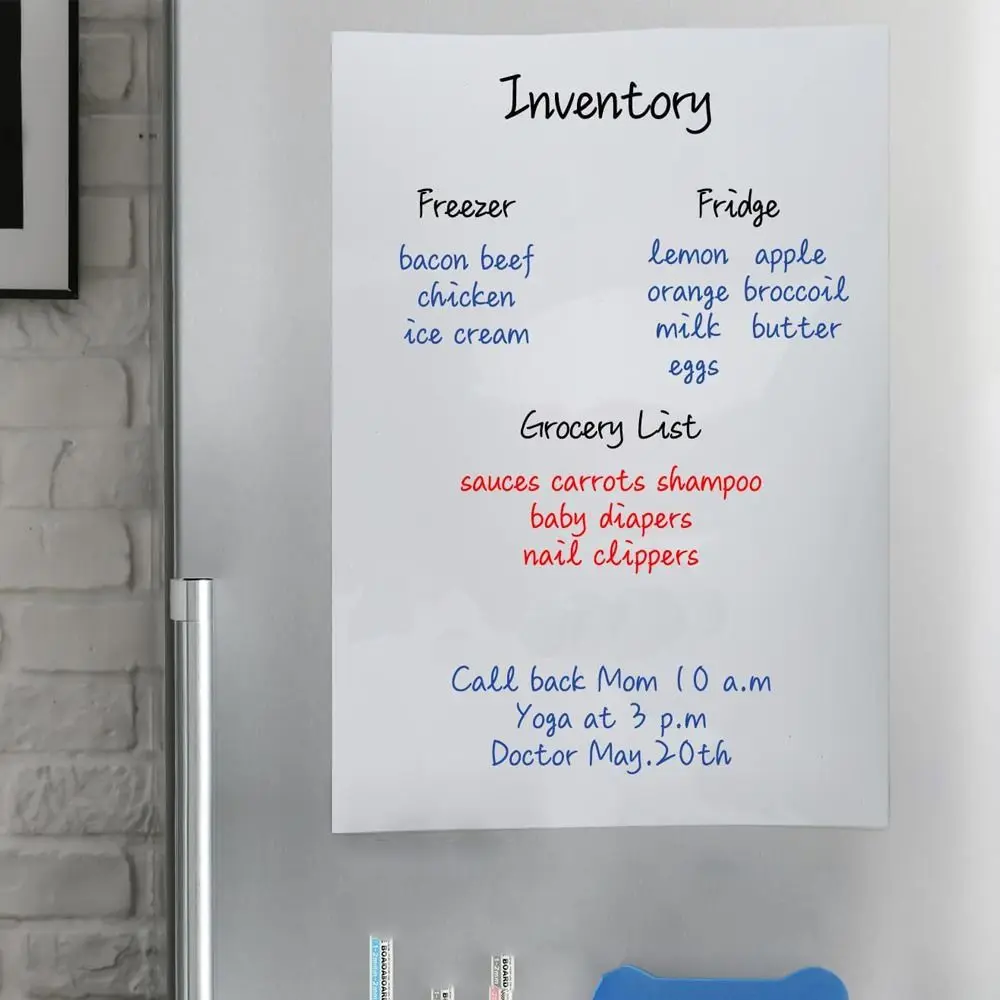 Inventory
Freezer
bacon beef
chicken
ice cream
Fridge
lemon apple
orange broccoil
milk butter
eggs
Grocery List
sauces carrots shampoo
baby diapers
nail clippers
Call back Mom 10 a.m
Yoga at 3 p.m
Doctor May.20th
BOARD